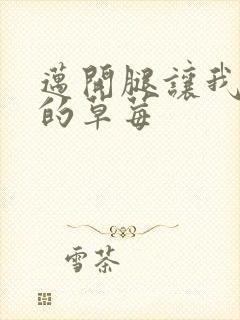 邁開腿讓我
的草莓
雪茶